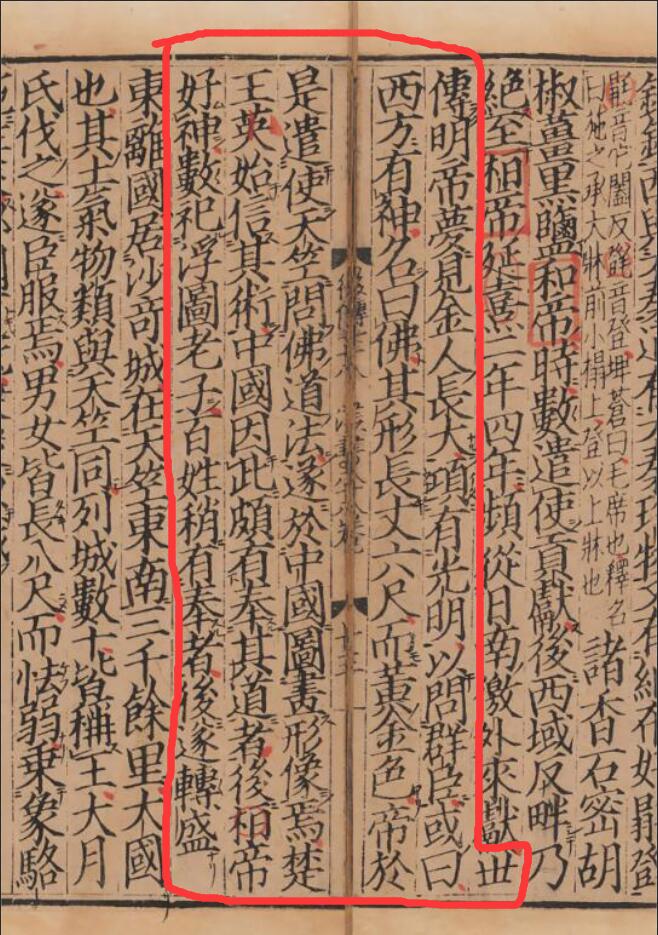 毾音它闔反㲪音登埤蒼曰毛席也釋名
曰施之承大牀前小榻上登以上牀也
諸香石密胡
椒薑黒鹽和帝時數遣使貢獻後西域反畔乃
絶至桓帝延熹二年四年頻從日南徼外來獻丗
傳明帝夢見金人長大項有光明以問群臣或曰
西方有神名曰佛其形長丈六尺而黄金色帝於
是遣使天竺問佛道法遂於中國圖畫形像焉楚
王英始信其術中國因此頗有奉其道者後桓帝
好神數祀浮圖老子百姓稍有奉者後遂轉盛
東離國居沙奇城在天竺東南三千餘里大國
也其土氣物類與天竺同列城數十皆稱王大月
氏伐之遂臣服焉男女皆長八尺而怯弱乗象駱